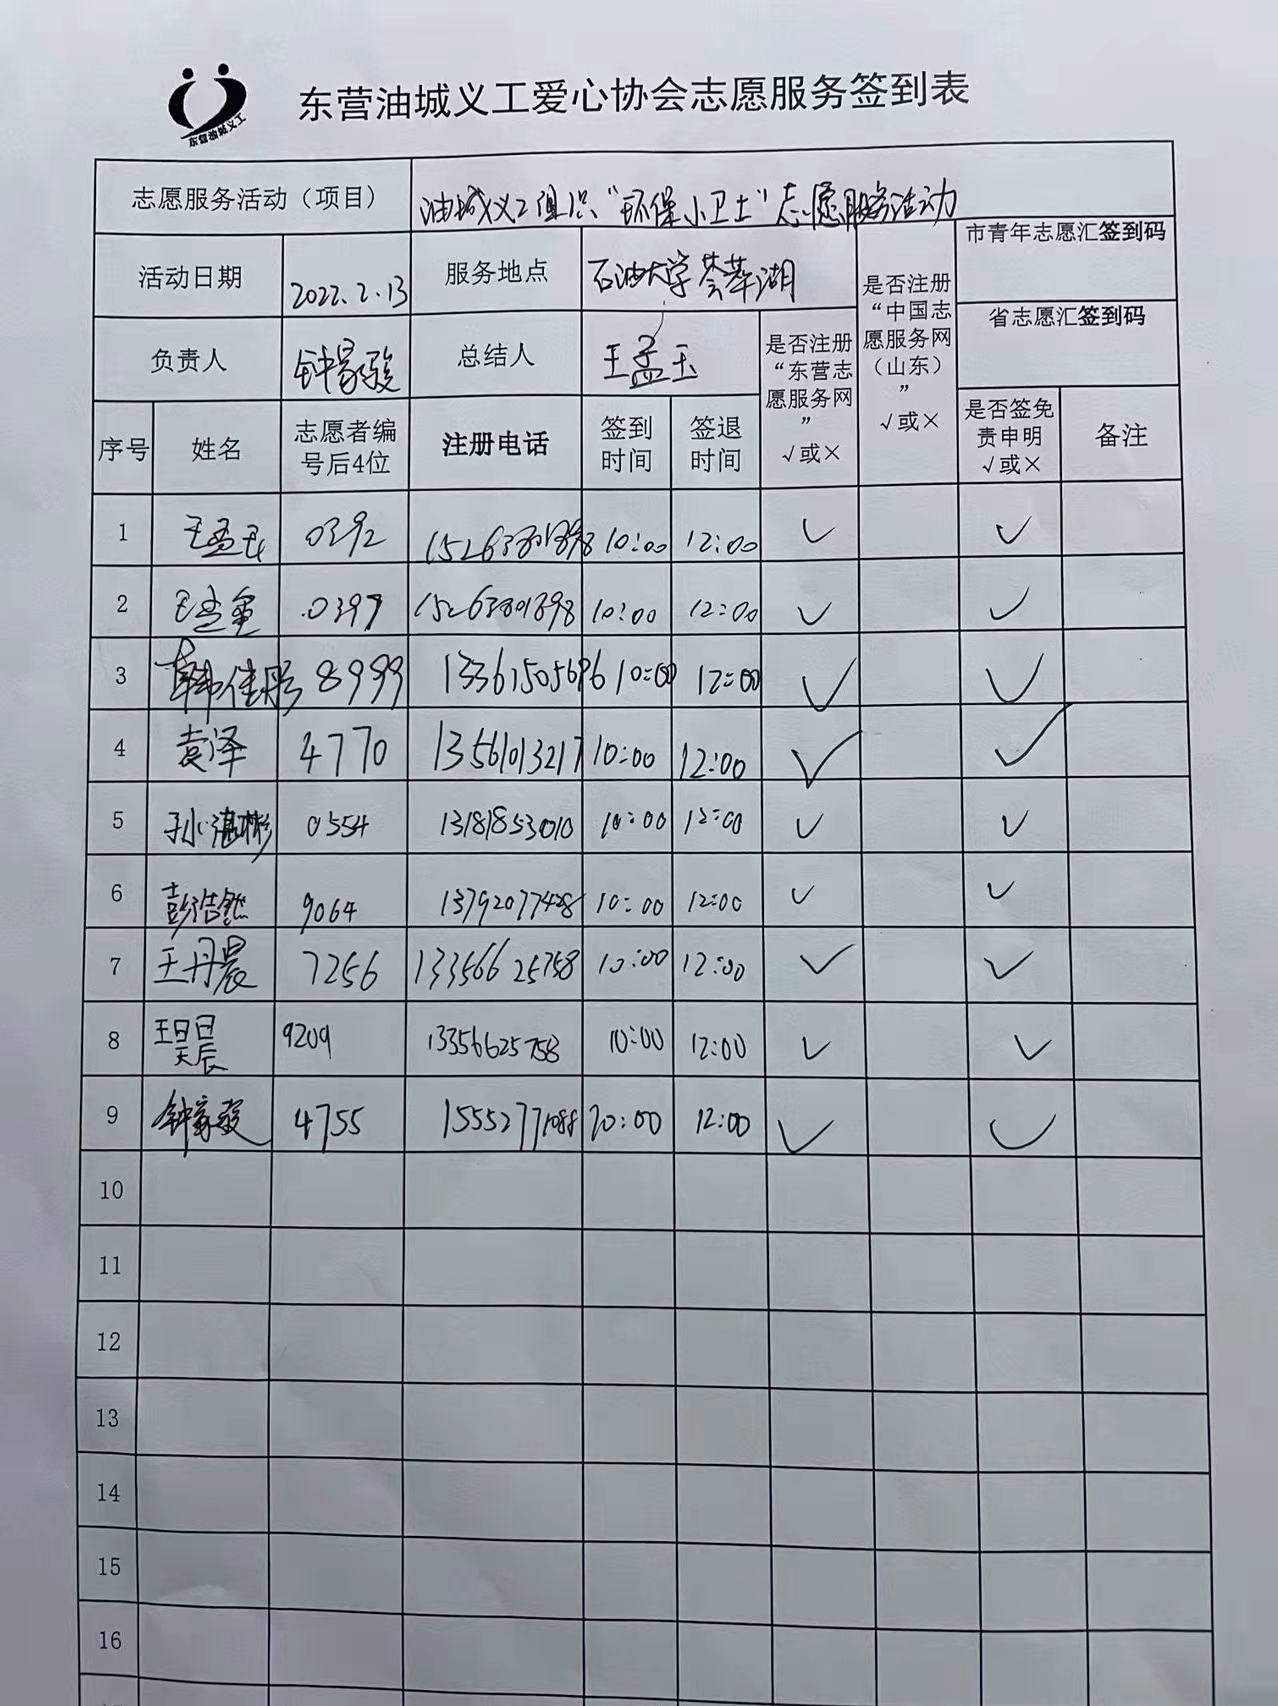 东营油城义工
东营油城义工爱心协会志愿服务签到表
志愿服务活动（项目） 油城义工组织“环保小卫士”志愿服务活动
活动日期 2022.2.13 服务地点 石油大学荟萃湖
负责人 钟家骏 总结人 王孟玉
是否注册“东营志愿服务网” √或×
是否注册“中国志愿服务网（山东）” √或×
市青年志愿汇签到码
省志愿汇签到码
序号 姓名 志愿者编号后4位 注册电话 签到时间 签退时间 是否签免责申明 √或× 备注
1 王孟玉 0392 10:00 12:00 √ √
2 0397 15263801898 10:00 12:00 √ √
3 韩佳彤 8999 13361505696 10:00 12:00 √ √
4 袁泽 4770 13561013217 10:00 12:00 √ √
5 0554 13181853010 10:00 12:00 √ √
6 彭浩然 9064 13792077428 10:00 12:00 √ √
7 王丹晨 7256 13356625758 10:00 12:00 √ √
8 王昊晨 9209 13356625758 10:00 12:00 √ √
9 钟家骏 4755 10:00 12:00 √ √
10
11
12
13
14
15
16